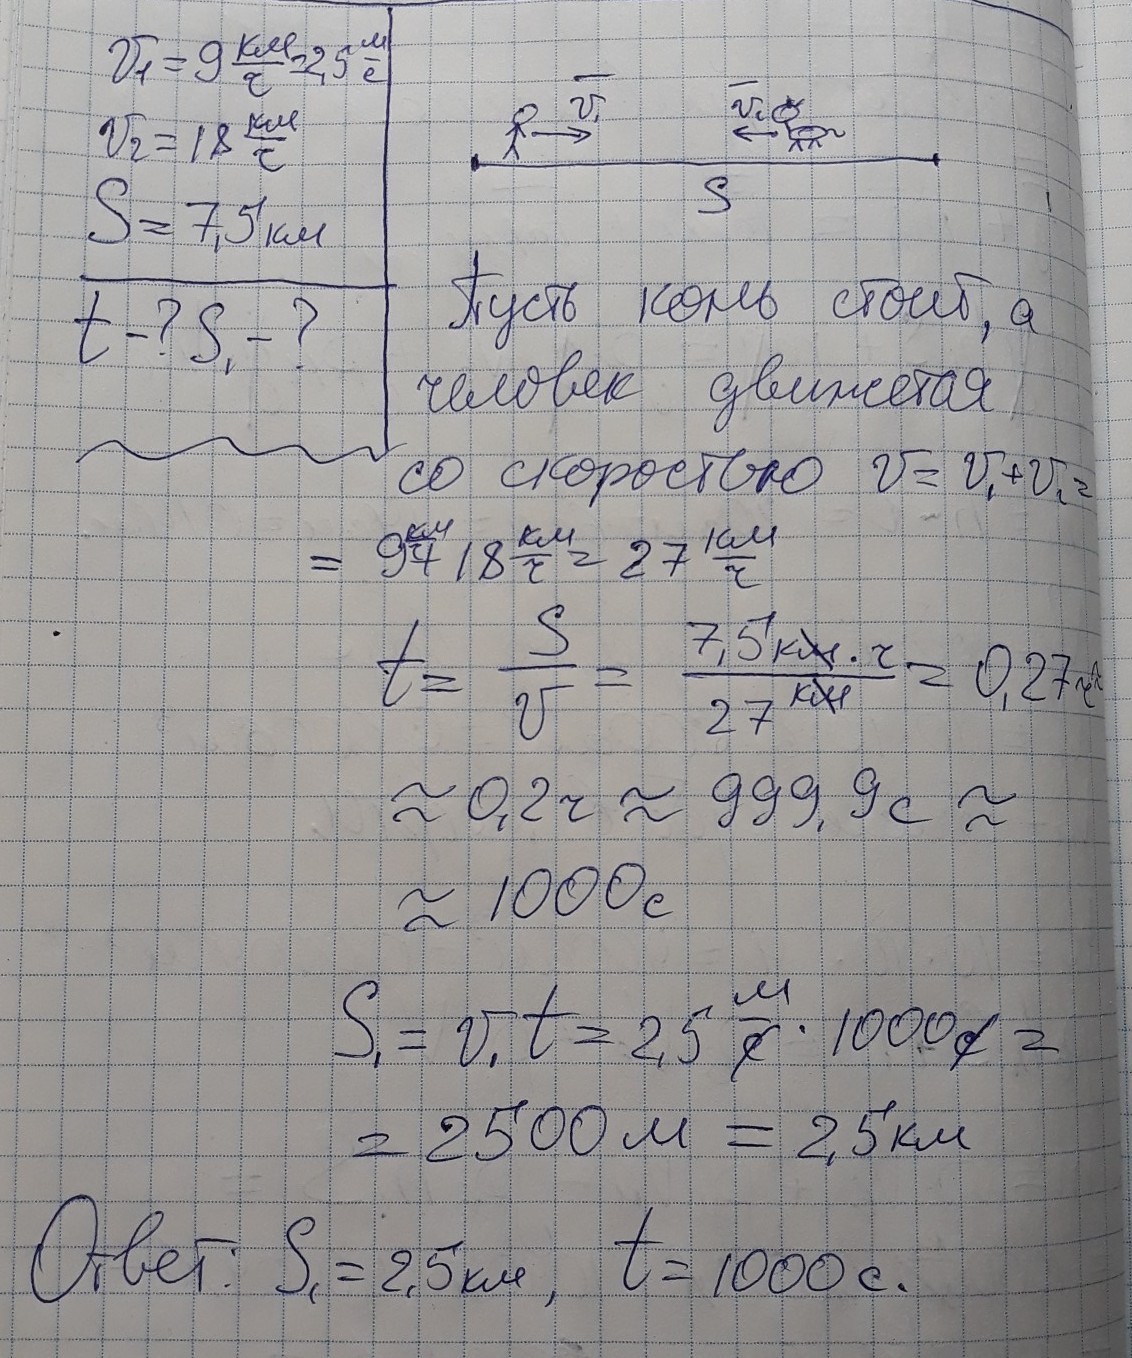 v₁ = 9 км/ч = 2,5 м/с
v₂ = 18 км/ч
S = 7,5 км
t - ? S₁ - ?
v₁ v₂
S
Пусть конь стоит, а
человек движется
со скоростью v = v₁ + v₂ =
= 9 км/ч + 18 км/ч = 27 км/ч
t = S/v = 7,5 км · ч / 27 км = 0,27 ч ≈
≈ 0,2 ч ≈ 999,9 с ≈
≈ 1000 с
S₁ = v₁ t = 2,5 м/с · 1000 с =
= 2500 м = 2,5 км
Ответ: S₁ = 2,5 км, t = 1000 с.